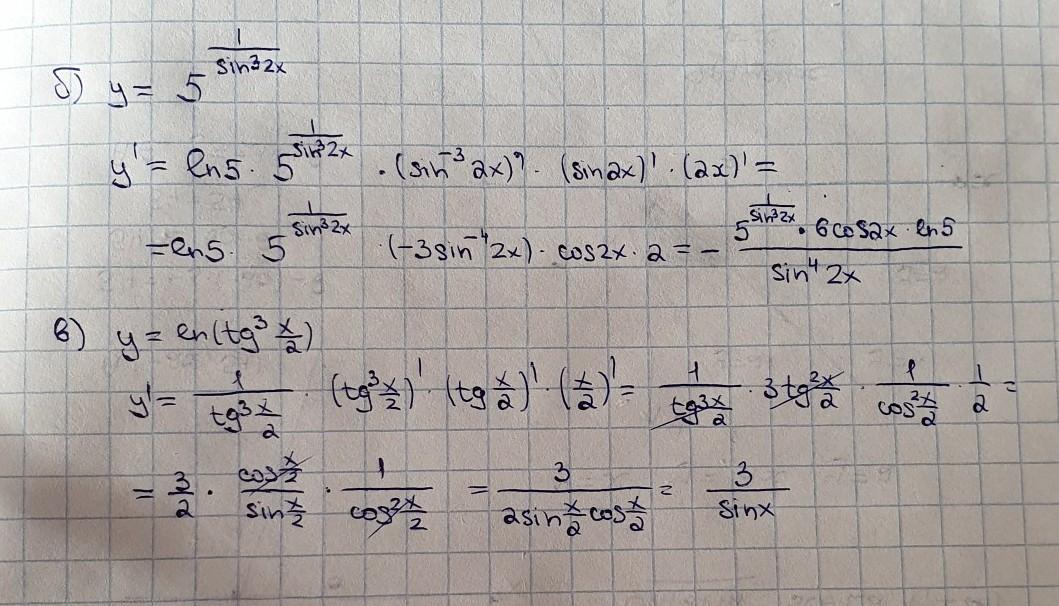 б) y = 5^(1/sin³2x)
y' = ln5 · 5^(1/sin³2x) · (sin⁻³ 2x)' · (sin2x)' · (2x)' =
= ln5 · 5^(1/sin³2x) · (-3sin⁻⁴2x) · cos2x · 2 = - (5^(1/sin³2x) · 6cos2x · ln5)/(sin⁴ 2x)
в) y = ln(tg³ x/2)
y' = 1/(tg³ x/2) · (tg³ x/2)' · (tg x/2)' · (x/2)' = 1/(tg³ x/2) · 3tg² x/2 · 1/(cos² x/2) · 1/2 =
= 3/2 · (cos x/2)/(sin x/2) · 1/(cos² x/2) = 3/(2sin x/2 cos x/2) = 3/(sinx)